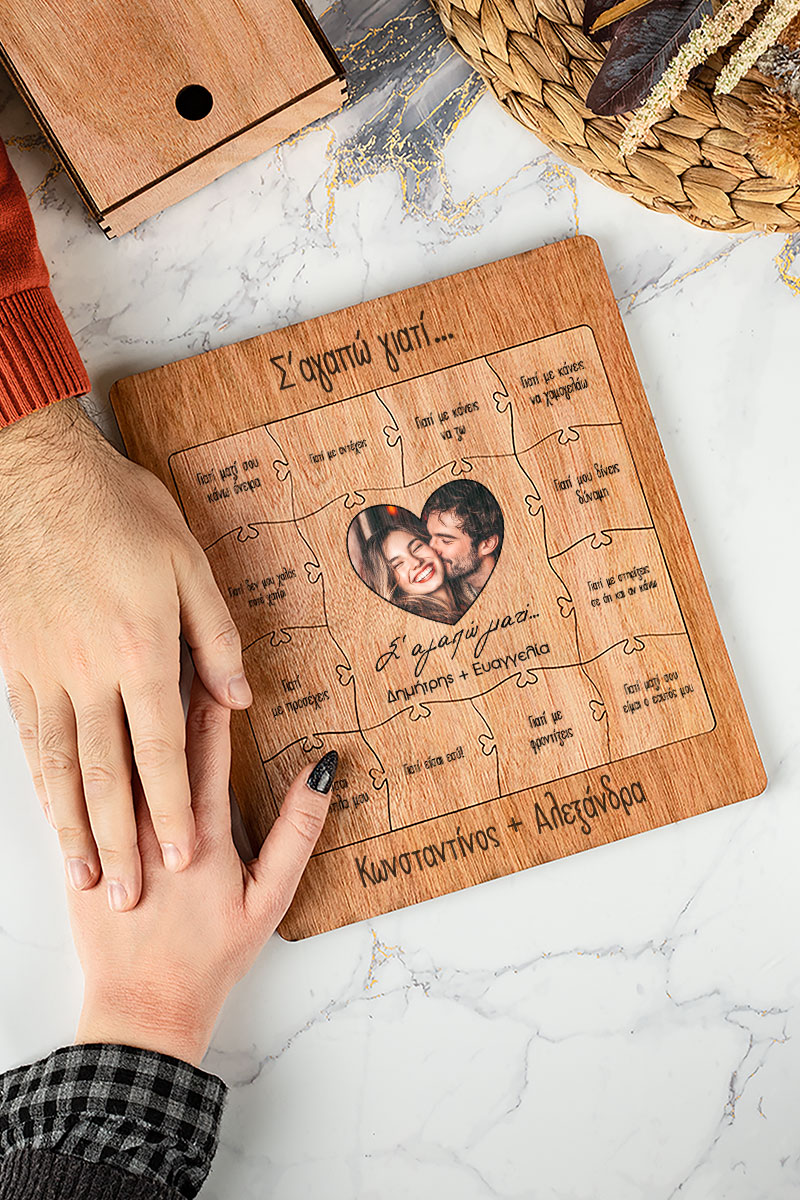 Σ' αγαπώ γιατί...
Γιατί μαζί σου
κάνω όνειρα
Γιατί με αντέχεις
Γιατί με κάνεις
να ζω
Γιατί με κάνεις
να χαμογελάω
Γιατί μου δίνεις
δύναμη
Γιατί δεν μου χαλάς
ποτέ χατίρι
Γιατί με στηρίζεις
σε ότι και αν κάνω
Σ' αγαπώ γιατί...
Δημήτρης + Ευαγγελία
Γιατί
με προσέχεις
Γιατί μαζί σου
είμαι ο εαυτός μου
Γιατί είσαι εσύ!
Γιατί με
φροντίζεις
μου
Κωνσταντίνος + Αλεξάνδρα